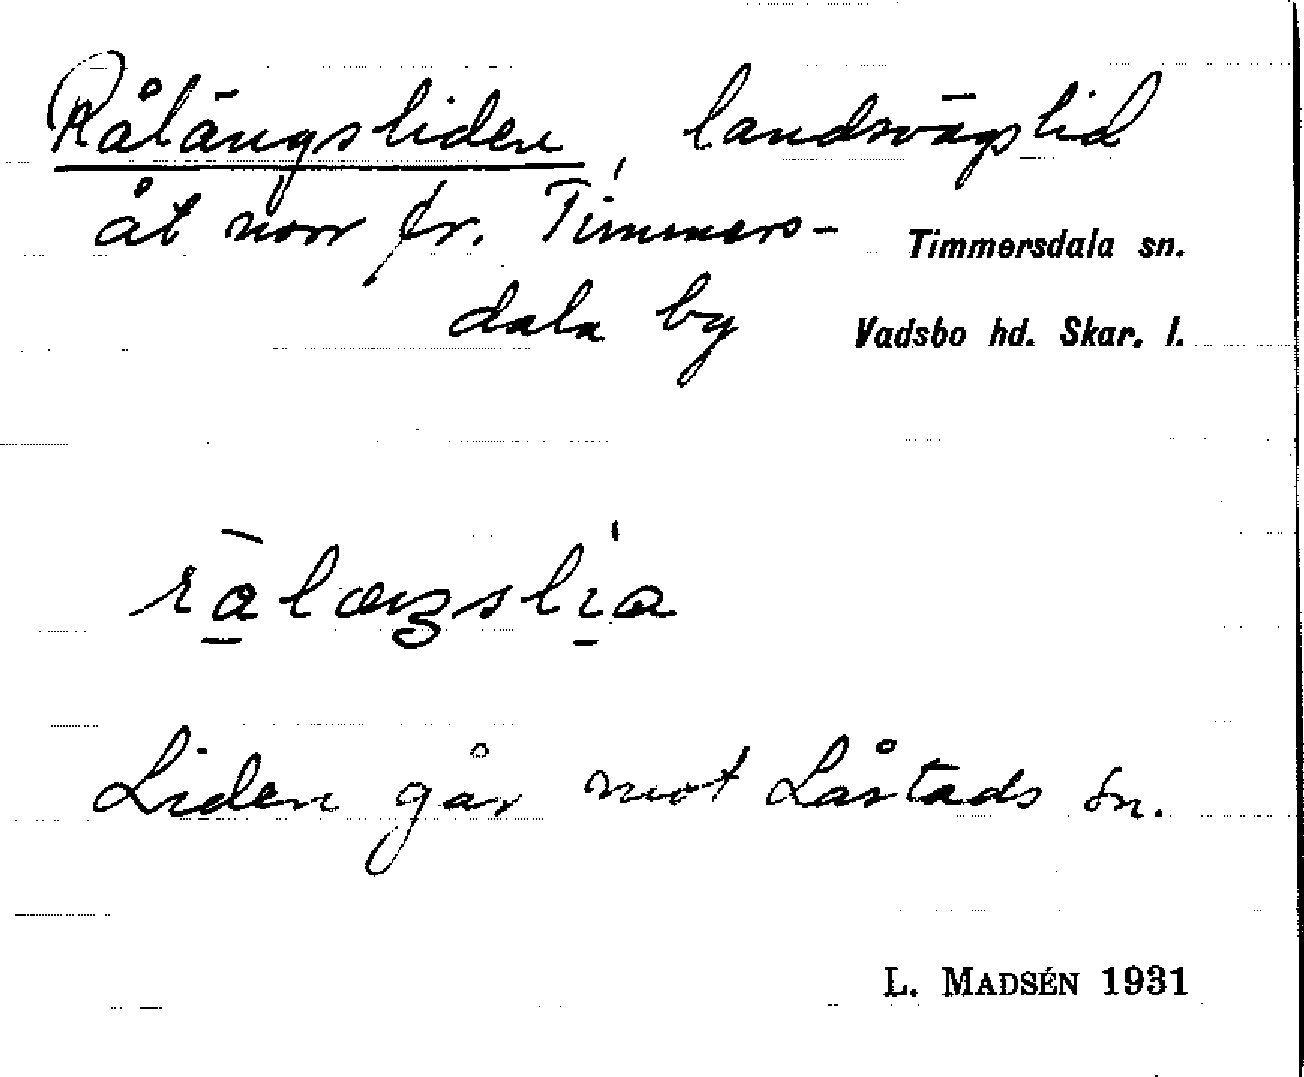 Rålängsliden, landsvägslid
åt norr fr. Timmers-
Timmersdala sn.
dala by
Vadsbo hd. Skar. l.
Liden går mot Låstads sn.
L. MADSÉN 1931